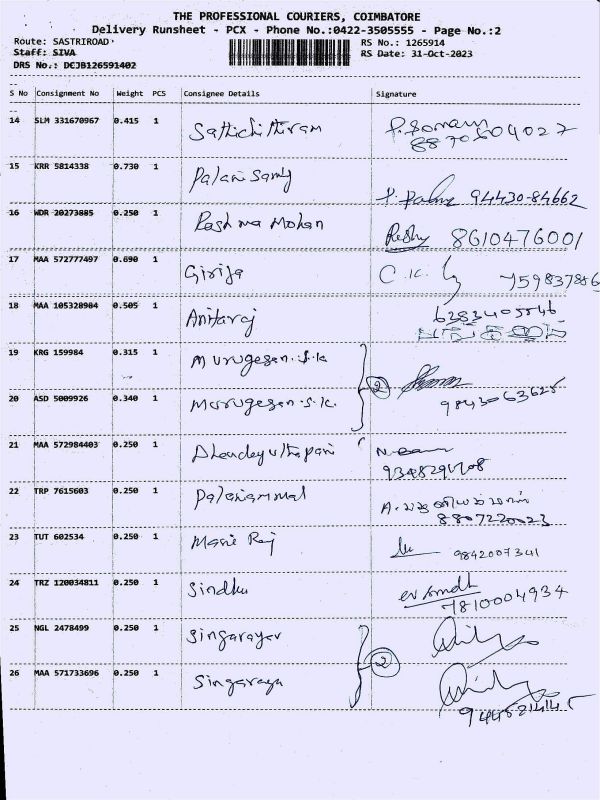 THE PROFESSIONAL COURIERS, COIMBATORE
Delivery Runsheet - PCX - Phone No.:0422-3505555 - Page No.:2
Route: SASTRIROAD RS No.: 1265914
Staff: SIVA RS Date: 31-Oct-2023
DRS No.: DCJB126591402
S No Consignment No Weight PCS Consignee Details Signature
14 SLM 331670967 0.415 1 Sathichithiram
8870604027
15 KRR 5814338 0.730 1 Palani Samy
94430-84662
16 WDR 20273885 0.250 1 Rashma Mohan
8610476001
17 MAA 572777497 0.690 1 Girija
C.K. 759837886
18 MAA 105328984 0.505 1 Anitaraj
6283405546
19 KRG 159984 0.315 1 Murugesan.S.K
2
20 ASD 5009926 0.340 1 Murugesan.S.K.
9843063625
21 MAA 572984403 0.250 1
22 TRP 7615603 0.250 1 Palaniammal
8807220023
23 TUT 602534 0.250 1 Marie Raj
9842007341
24 TRZ 120034811 0.250 1 Sindhu
7810004934
25 NGL 2478499 0.250 1 Singarayar
2
26 MAA 571733696 0.250 1 Singaraya